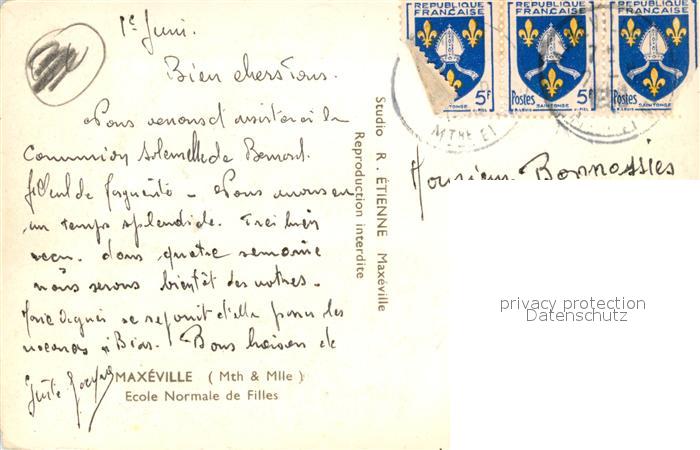 1e Juin.
Bien chers Tous.
Nous venons d'assister à la
Communion Solennelle de Bernard.
filleul de - Nous avons eu
un temps splendide. Très bien
reçu. dans quatre semaine
nous serons bientôt des vôtres.
se rejouit d'aller passer les
vacances à Bias. Bons baisers de
MAXÉVILLE (Mth & Mlle)
Ecole Normale de Filles
Studio R. ÉTIENNE Maxéville
Reproduction interdite
REPUBLIQUE FRANÇAISE
5F
REPUBLIQUE FRANÇAISE
Postes SAINTONGE 5F
REPUBLIQUE FRANÇAISE
Postes SAINTONGE
MTHE ET
Monsieur Bonnassies
privacy protection
Datenschutz